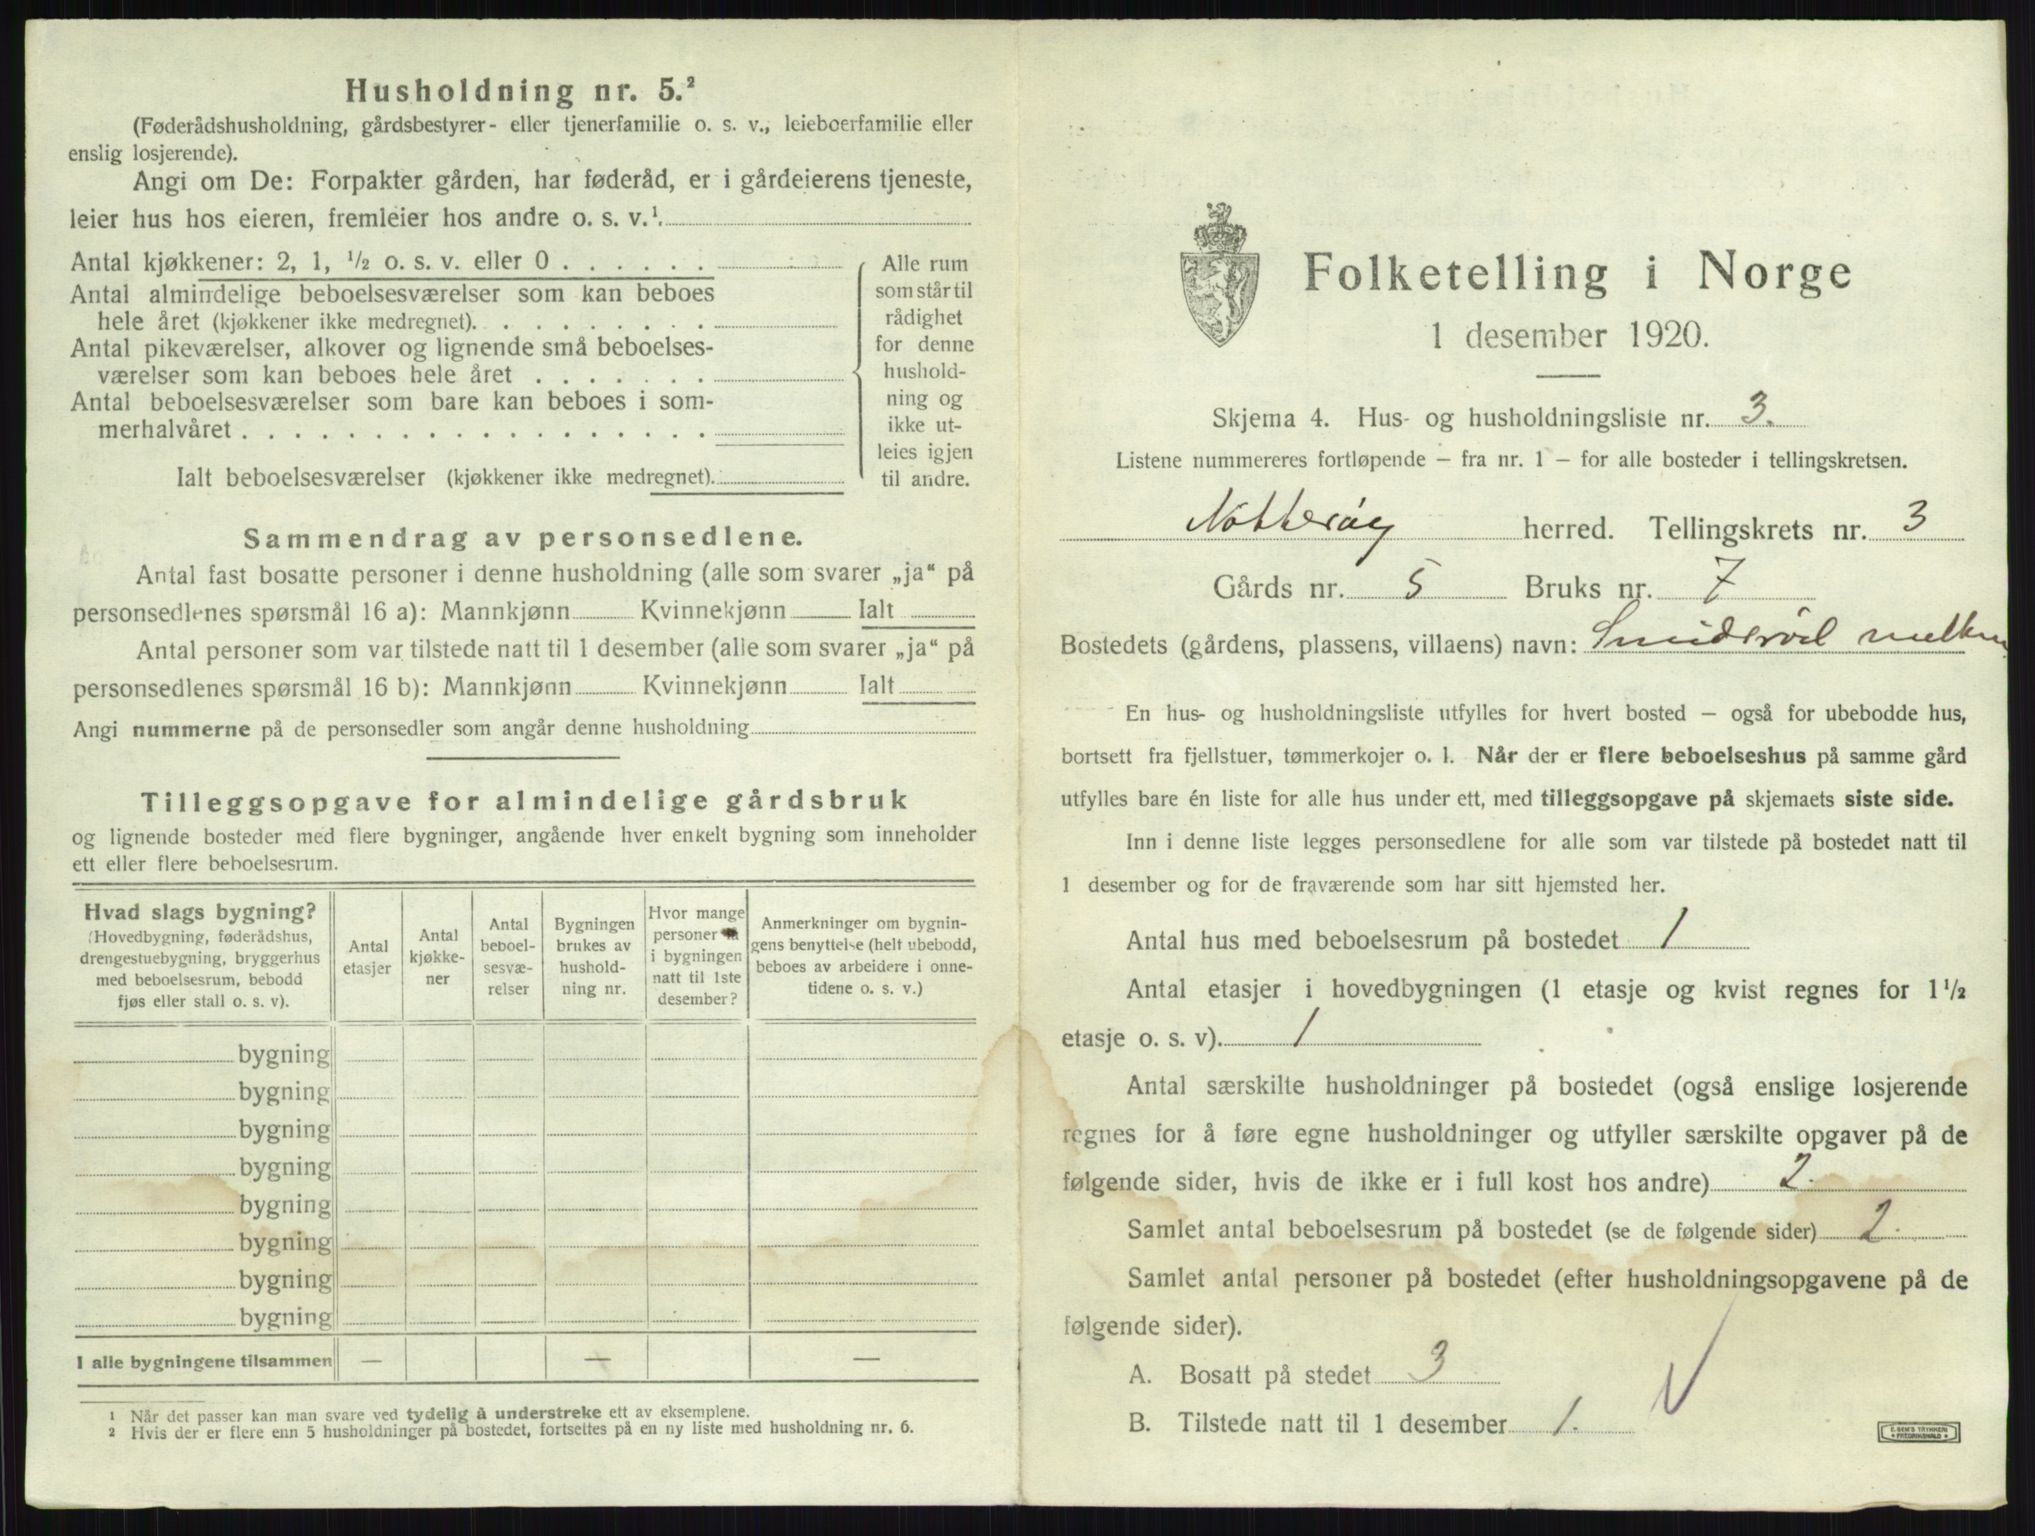 Husholdning nr. 5.²
(Føderådshusholdning, gårdsbestyrer- eller tjenerfamilie o. s. v., leieboerfamilie eller
enslig losjerende).
Angi om De: Forpakter gården, har føderåd, er i gårdeierens tjeneste,
leier hus hos eieren, fremleier hos andre o. s. v.¹.
Antal kjøkkener: 2, 1, ½ o. s. v. eller 0 . . . . . .
Antal almindelige beboelsesværelser som kan beboes
hele året (kjøkkener ikke medregnet). . . . . . . . .
Antal pikeværelser, alkover og lignende små beboelses-
værelser som kan beboes hele året . . . . . . .
Antal beboelsesværelser som bare kan beboes i som-
merhalvåret . . . . . . . . . . . . . . . . . .
Ialt beboelsesværelser (kjøkkener ikke medregnet).
Alle rum
som står til
rådighet
for denne
hushold-
ning og
ikke ut-
leies igjen
til andre.
Sammendrag av personsedlene.
Antal fast bosatte personer i denne husholdning (alle som svarer „ja“ på
personsedlenes spørsmål 16 a): Mannkjønn Kvinnekjønn Ialt
Antal personer som var tilstede natt til 1 desember (alle som svarer „ja“ på
personsedlenes spørsmål 16 b): Mannkjønn Kvinnekjønn Ialt
Angi nummerne på de personsedler som angår denne husholdning
Tilleggsopgave for almindelige gårdsbruk
og lignende bosteder med flere bygninger, angående hver enkelt bygning som inneholder
ett eller flere beboelsesrum.
Hvad slags bygning?
(Hovedbygning, føderådshus,
drengestuebygning, bryggerhus
med beboelsesrum, bebodd
fjøs eller stall o. s. v).
Antal
etasjer
Antal
kjøkke-
ner
Antal
beboel-
sesvæ-
relser
Bygningen
brukes av
hushold-
ning nr.
Hvor mange
personer
i bygningen
natt til 1ste
desember?
Anmerkninger om bygnin-
gens benyttelse (helt ubebodd,
beboes av arbeidere i onne-
tidene o. s. v.)
bygning
bygning
bygning
bygning
bygning
bygning
bygning
bygning
I alle bygningene tilsammen — — —
¹ Når det passer kan man svare ved tydelig å understreke ett av eksemplene.
² Hvis der er flere enn 5 husholdninger på bostedet, fortsettes på en ny liste med husholdning nr. 6.
Folketelling i Norge
1 desember 1920.
Skjema 4. Hus- og husholdningsliste nr. 3.
Listene nummereres fortløpende – fra nr. 1 – for alle bosteder i tellingskretsen.
Nøtterøy herred. Tellingskrets nr. 3
Gårds nr. 5 Bruks nr. 7
Bostedets (gårdens, plassens, villaens) navn: Smidsrød
En hus- og husholdningsliste utfylles for hvert bosted – også for ubebodde hus,
bortsett fra fjellstuer, tømmerkojer o. l. Når der er flere beboelseshus på samme gård
utfylles bare én liste for alle hus under ett, med tilleggsopgave på skjemaets siste side.
Inn i denne liste legges personsedlene for alle som var tilstede på bostedet natt til
1 desember og for de fraværende som har sitt hjemsted her.
Antal hus med beboelsesrum på bostedet 1
Antal etasjer i hovedbygningen (1 etasje og kvist regnes for 1½
etasje o. s. v). 1
Antal særskilte husholdninger på bostedet (også enslige losjerende
regnes for å føre egne husholdninger og utfyller særskilte opgaver på de
følgende sider, hvis de ikke er i full kost hos andre) 2.
Samlet antal beboelsesrum på bostedet (se de følgende sider) 2.
Samlet antal personer på bostedet (efter husholdningsopgavene på de
følgende sider).
A. Bosatt på stedet 3
B. Tilstede natt til 1 desember 1.
E. SEM'S TRYKKERI
FREDRIKSHALD